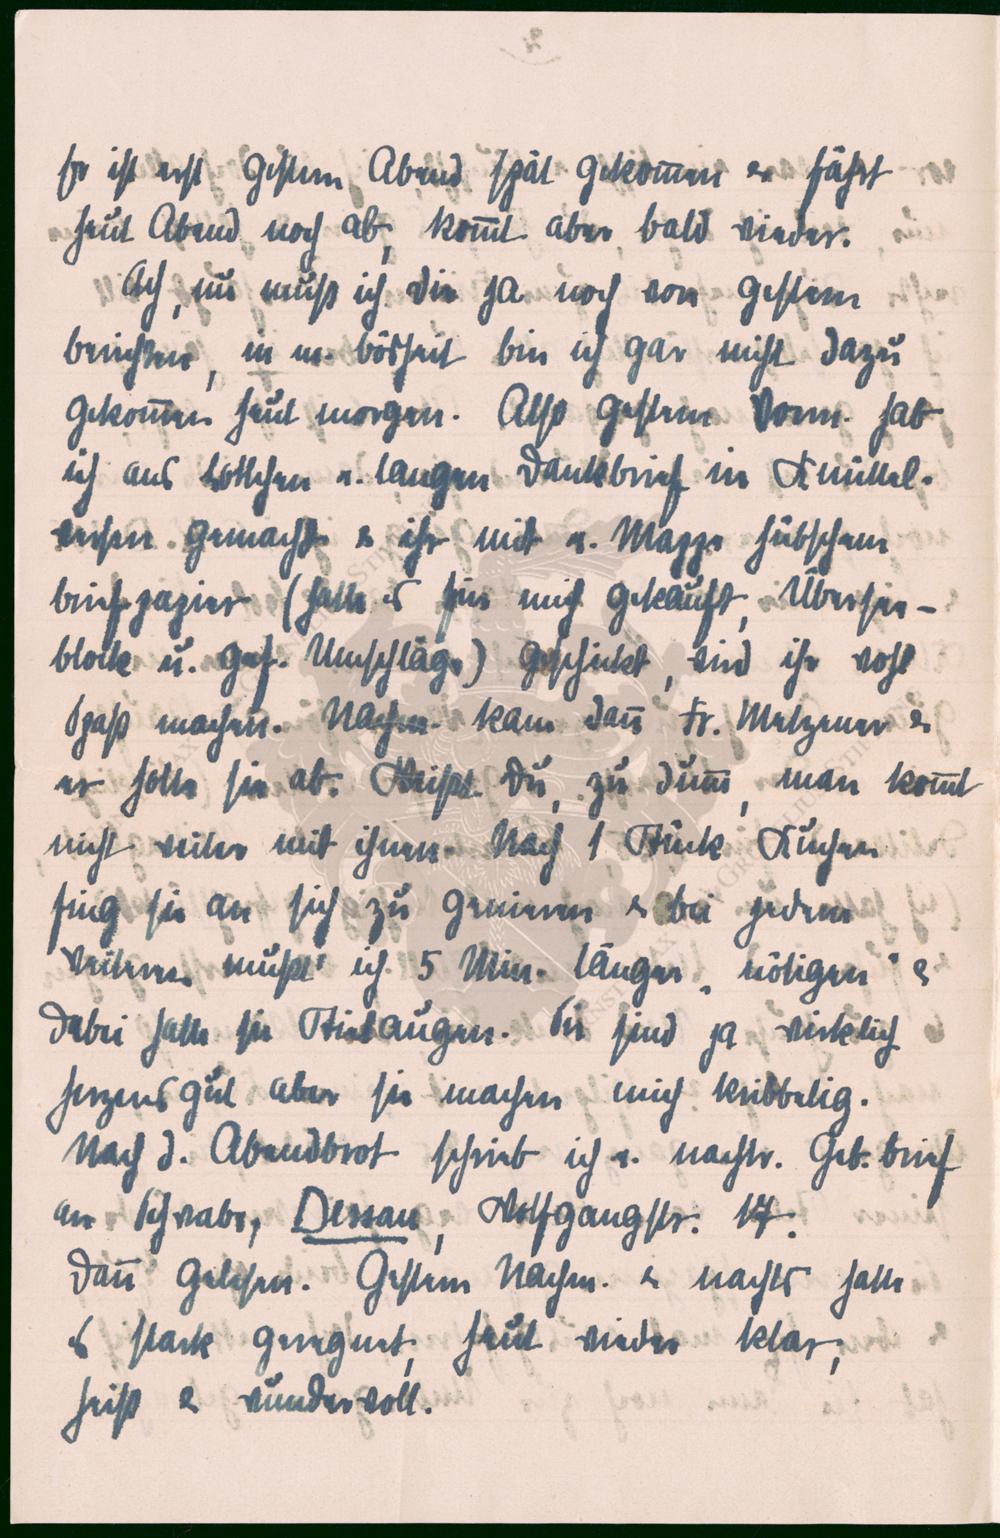 Er ist erst gestern Abend spät gekom̅en & fährt
heut Abend noch ab, kom̅t aber bald wieder.
Ach, nu muß ich dir ja noch von gestern
berichten, in m. Bösheit bin ich gar nicht dazu
gekom̅en heut morgen. Also gestern Vorm. hab
ich aus Lottchen e. langen Dankbrief in Knüttel-
versen gemacht & ihr mit e. Mappe hübschem
Briefpapier (hatte es für mich gekauft, Übersee-
block u. gef. Umschläge) geschickt, wird ihr wohl
Spaß machen. Nachm. kam dan̅ Fr. Metzener &
er holte sie ab. Weißt Du, zu dum̅, man kom̅t
nicht weiter mit ihnen. Nach 1 Stück Kuchen
fing sie an sich zu genieren & bei jedem
weiteren mußt' ich 5 Min. länger „nötigen" &
dabei hatte sie Stielaugen. Sie sind ja wirklich
herzensgut aber sie machen mich kribbelig.
Nach d. Abendbrot schrieb ich e. nachtr. Geb. brief
an Schwabe, Dessau, Wolfgangstr. 17.
Dan̅ gelesen. Gestern Nachm. & nachts hatte
es stark geregnet, heut wieder klar,
heiß & wundervoll.